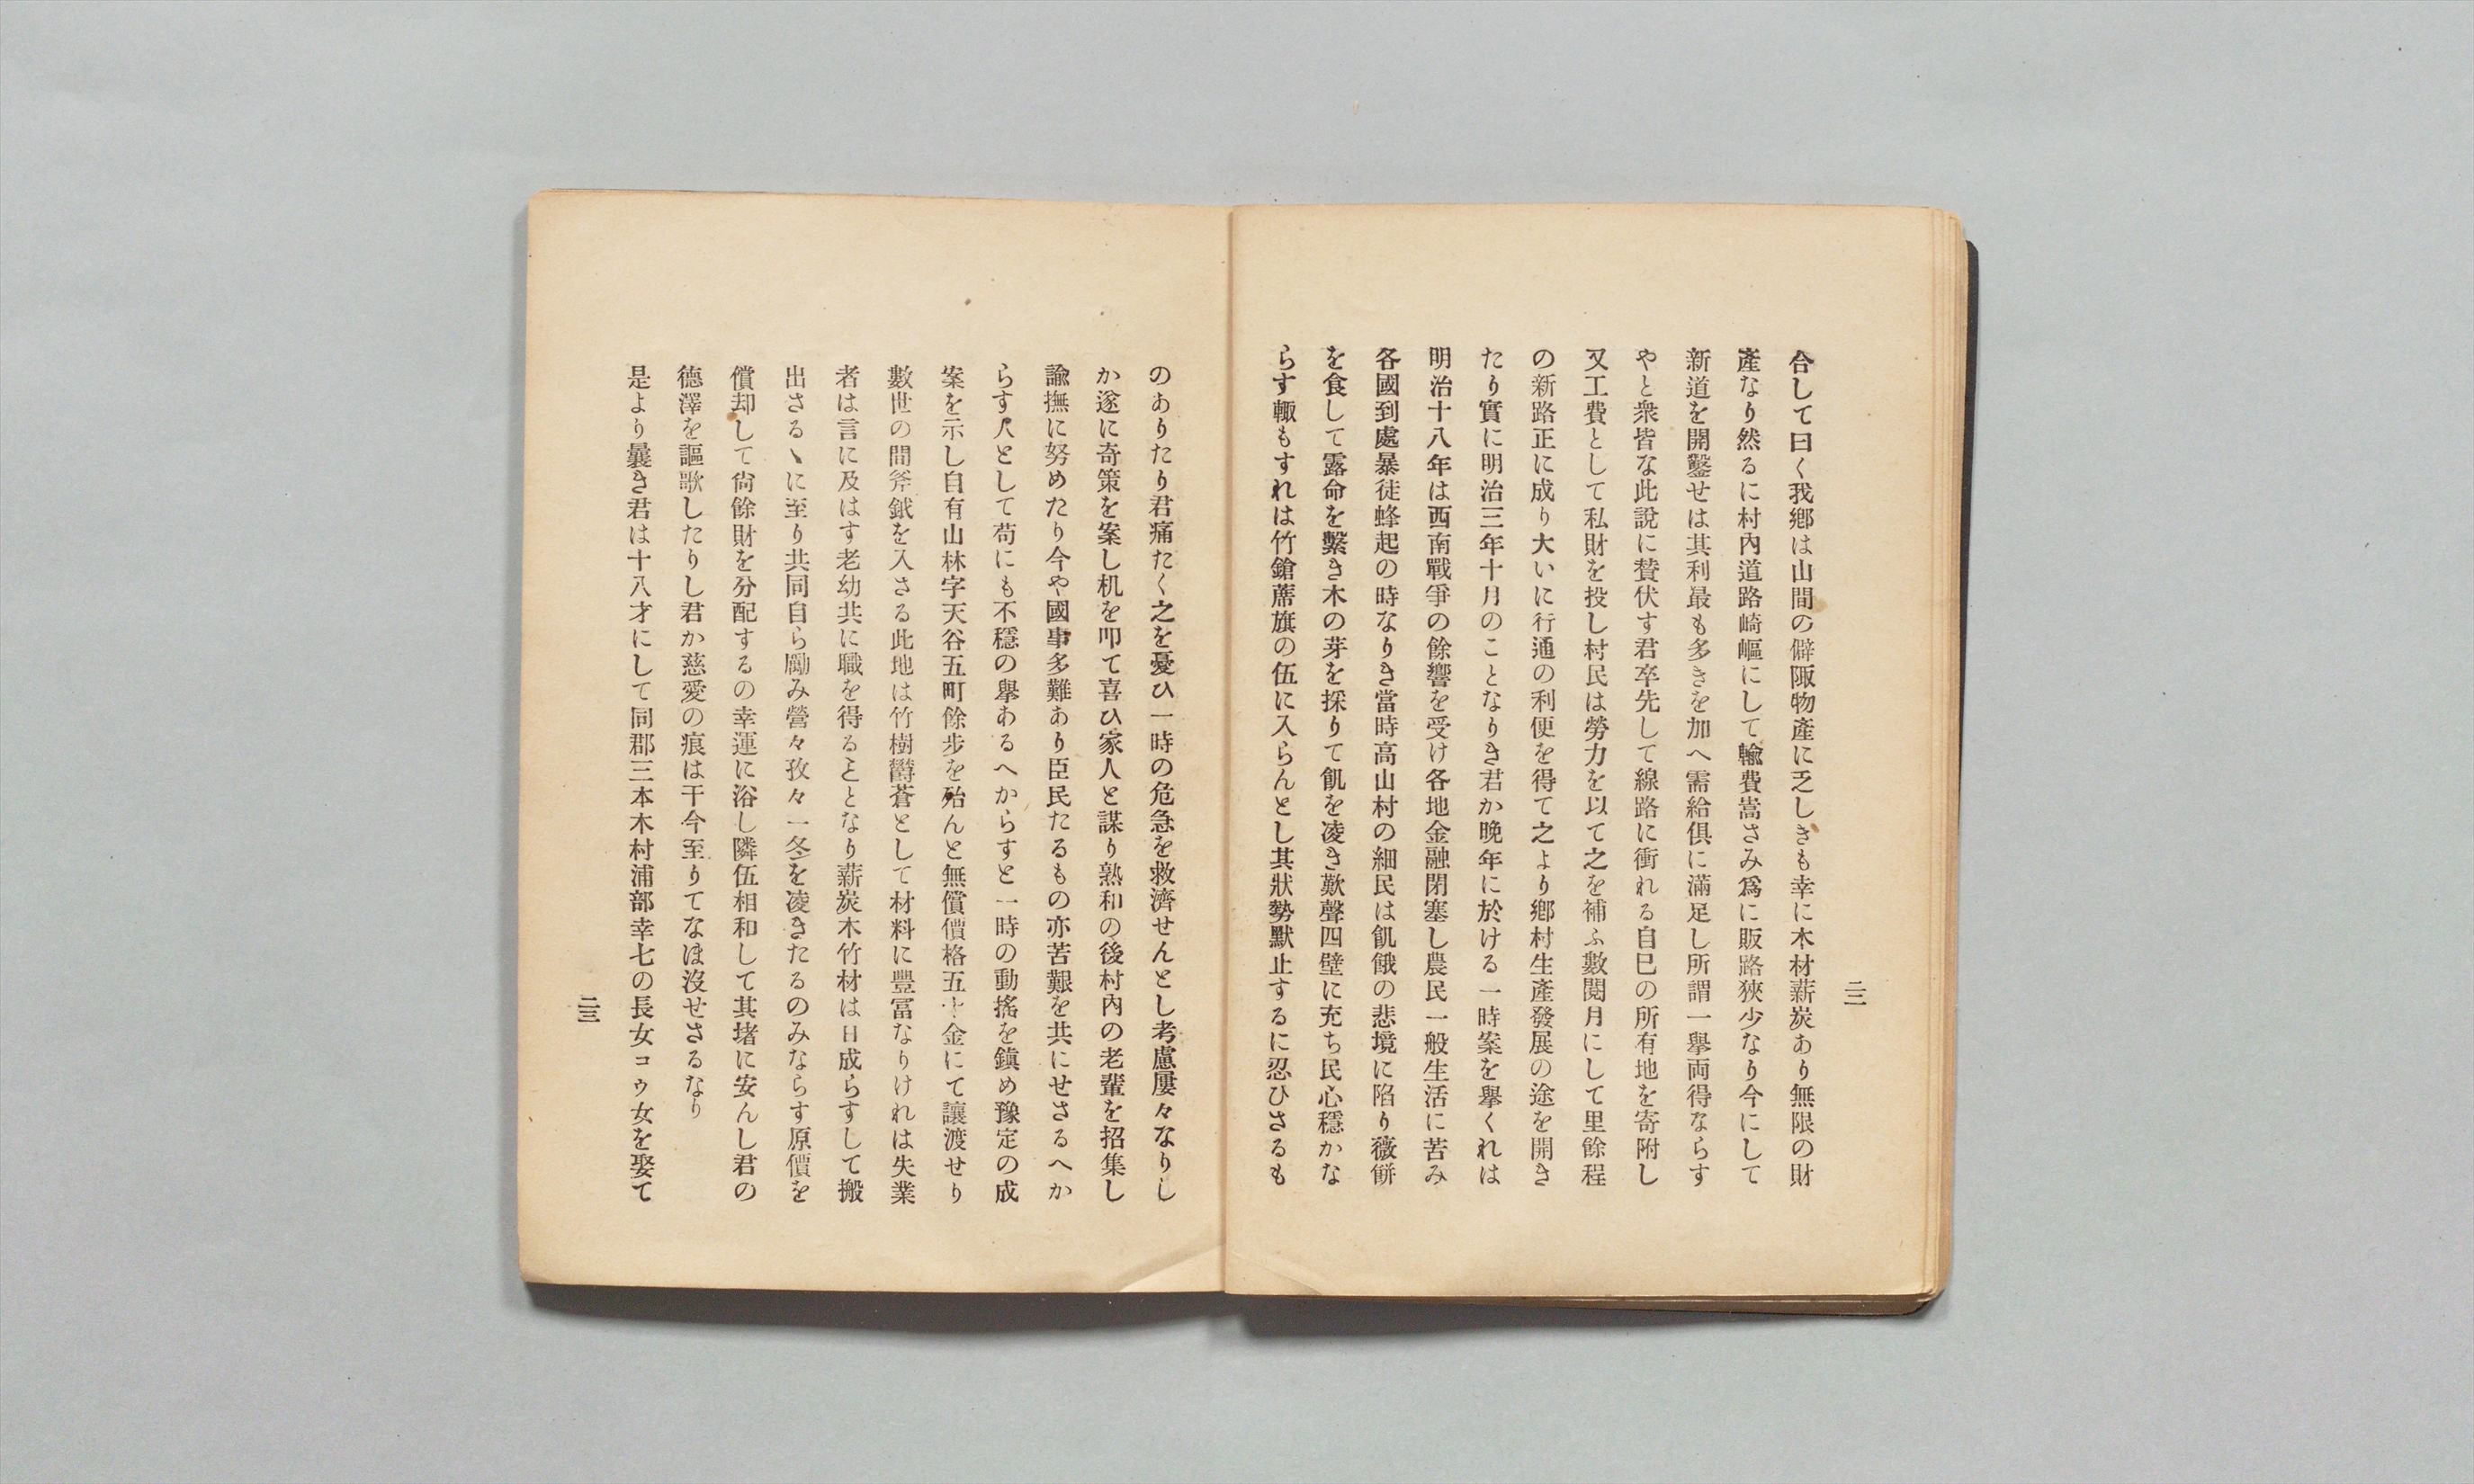 合して曰く我鄕は山間の僻陬物產に乏しきも幸に木材薪炭あり無限の財
產なり然るに村內道路崎嶇にして輸費嵩さみ爲に販路狹少なり今にして
新道を開鑿せは其利最も多きを加へ需給俱に滿足し所謂一擧両得ならす
やと衆皆な此說に賛伏す君卒先して線路に衝れる自巳の所有地を寄附し
又工費として私財を投し村民は勞力を以て之を補ふ數閱月にして里餘程
の新路正に成り大いに行通の利便を得て之より鄕村生產發展の途を開き
たり實に明治三年十月のことなりき君か晚年に於ける一時案を擧くれは
明治十八年は西南戰爭の餘響を受け各地金融閉塞し農民一般生活に苦み
各國到處暴徒蜂起の時なりき當時高山村の細民は飢餓の悲境に陷り薇餠
を食して露命を繫き木の芽を採りて飢を凌き歎聲四壁に充ち民心穩かな
らす輙もすれは竹鎗蓆旗の伍に入らんとし其狀勢默止するに忍ひさるも
二二
のありたり君痛たく之を憂ひ一時の危急を救濟せんとし考慮屢々なりし
か遂に奇策を案し机を叩て喜ひ家人と謀り熟和の後村內の老輩を招集し
諭撫に努めたり今や國事多難あり臣民たるもの亦苦艱を共にせさるへか
らす人として苟にも不穩の擧あるへからすと一時の動搖を鎭め豫定の成
案を示し自有山林字天谷五町餘步を殆んと無償價格五十金にて讓渡せり
數世の間斧鉞を入さる此地は竹樹欝蒼として材料に豐富なりけれは失業
者は言に及はす老幼共に職を得ることとなり薪炭木竹材は日成らすして搬
出さるゝに至り共同自ら勵み營々孜々一冬を凌きたるのみならす原價を
償却して尙餘財を分配するの幸運に浴し隣伍相和して其堵に安んし君の
德澤を謳歌したりし君か慈愛の痕は干今至りてなほ沒せさるなり
是より曩き君は十八才にして同郡三本木村浦部幸七の長女コゥ女を娶て
二三